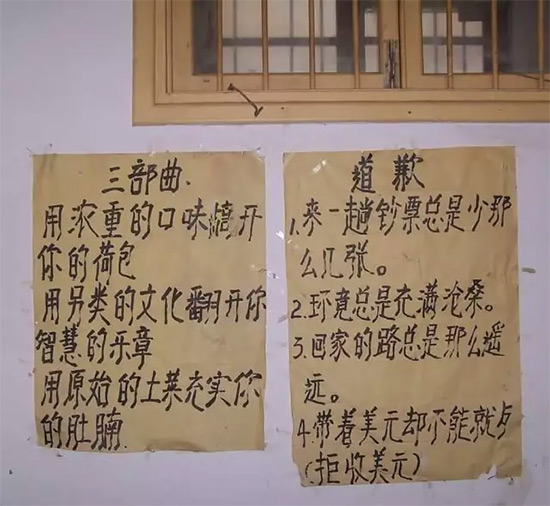 三部曲.
用浓重的口味熗开
你的荷包
用另类的文化翻开你
智慧的乐章
用原始的土菜充实你
的肚腩.
道歉
1.来一趟钞票总是少那
么几张。
2.环竟总是充满沧桑。
3.回家的路总是那么遥
远。
4.带着美元却不能就歺
(拒收美元)